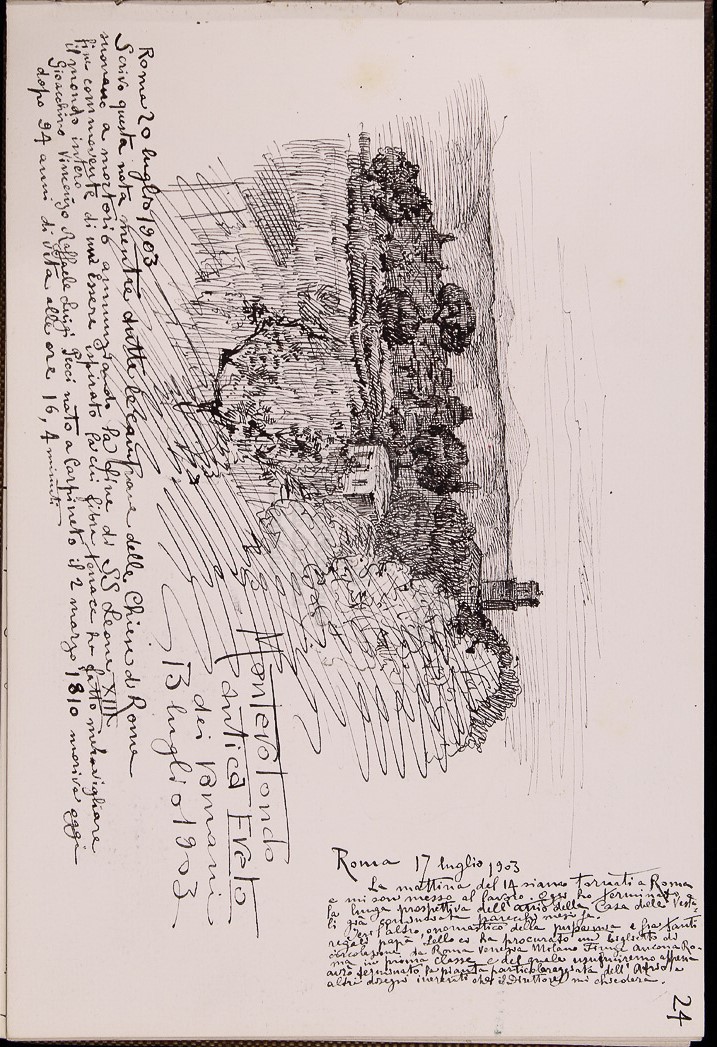 24
Roma 17 luglio 1903
La mattina del 14 siamo tornati a Roma
e mi son messo al lavoro. Oggi ho terminato
la lunga prospettiva dell'atrio della Casa delle Vesta-
li già cominciata parecchi mesi fa.
Jeri l'altro, onomastico della
regali papà Lello ci ha procurato un biglietto di
circolazione da Roma Venezia Milano Firenze Ancona Ro-
ma in prima classe e del quale usufruiremo appena
avrò terminato la pianta particolareggiata dell'Atrio e
altri disegni inerenti che il Direttore mi chiederà.
Montevotondo
antica Ereto
dei romani
13 luglio 1903
Roma 20 luglio 1903
Scrivo questa nota mentre tutte le campane delle Chiese di Roma
suonano a mortorio annunziando la fine di SS Leone XIII
fine commovente di un essere spirato la cui fibra tenace ha fatto maravigliare
il mondo intero.
Gioacchino Vincenzo Raffaele Luigi Pecci nato a Carpineto il 2 marzo 1810 moriva oggi
dopo 94 anni di vita alle ore 16, 4 minuti